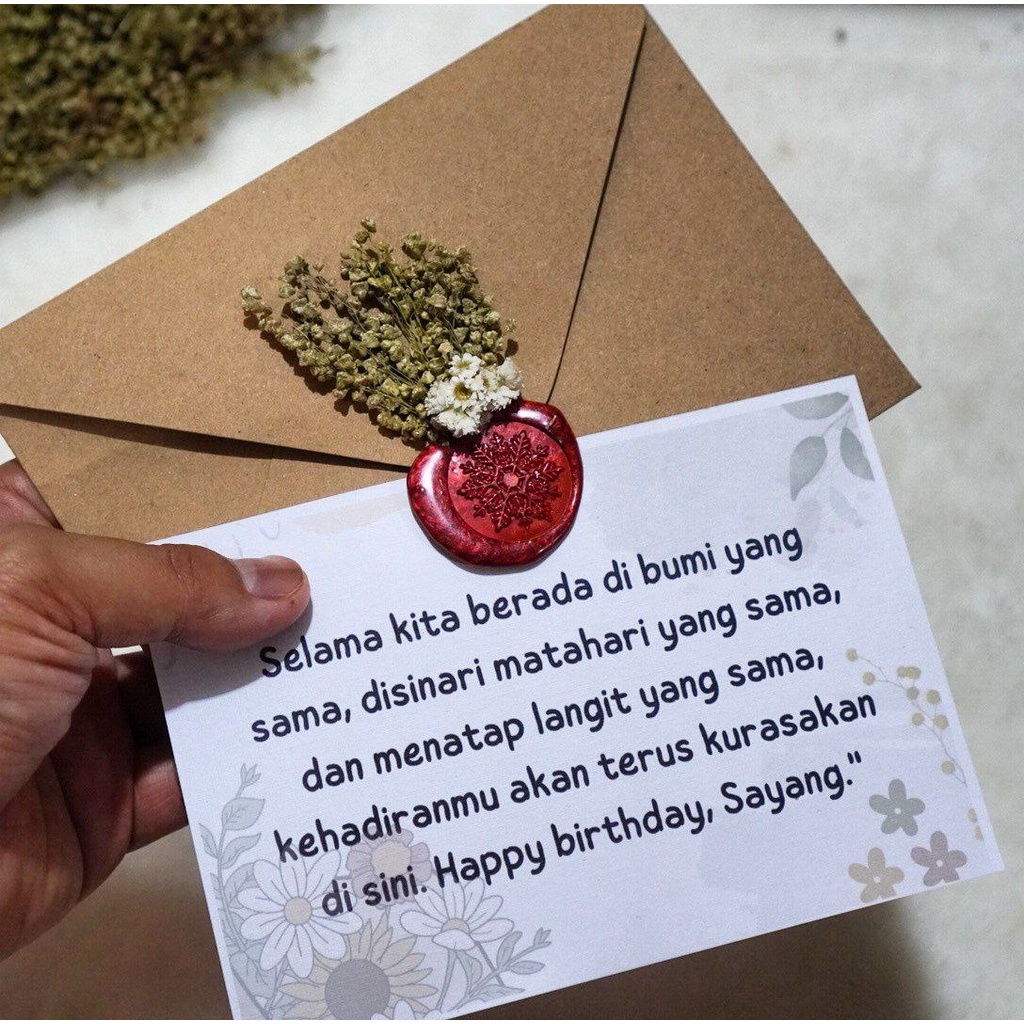 Selama kita berada di bumi yang
sama, disinari matahari yang sama,
dan menatap langit yang sama,
kehadiranmu akan terus kurasakan
di sini. Happy birthday, Sayang."